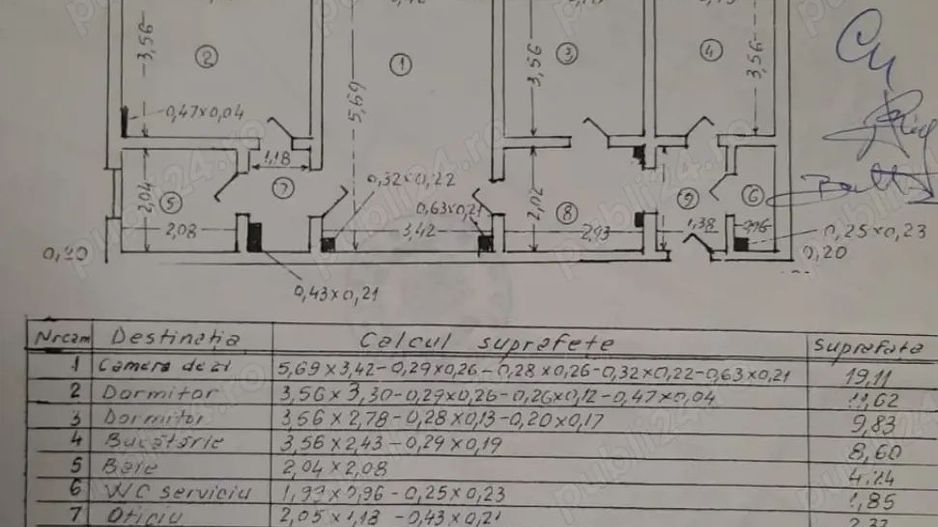 3,56
2
1
3
3,56
4
3,56
Cu
0,47x0,04
5,69
1,18
0,32x0,22
2,04
7
0,63x0,21
2,02
5
8
9
6
2,08
3,42
2,93
1,38
0,96
0,25x0,23
0,20
0,20
0,43x0,21
Nr.cam Destinatia Calcul suprafete Suprafata
1 Camera de zi 5,69x3,42-0,29x0,26-0,28x0,26-0,32x0,22-0,63x0,21 19,11
2 Dormitor 3,56x3,30-0,29x0,26-0,26x0,12-0,47x0,04 11,62
3 Dormitor 3,56x2,78-0,28x0,13-0,20x0,17 9,83
4 Bucătărie 3,56x2,43-0,29x0,19 8,60
5 Baie 2,04x2,08 4,24
6 WC serviciu 1,99x0,96-0,25x0,23 1,85
7 Oficiu 2,05x1,18-0,43x0,21
publi24.ro